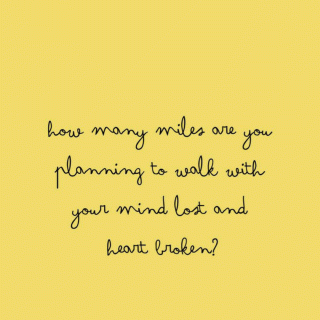 how many miles are you
planning to walk with
your mind lost and
heart broken?